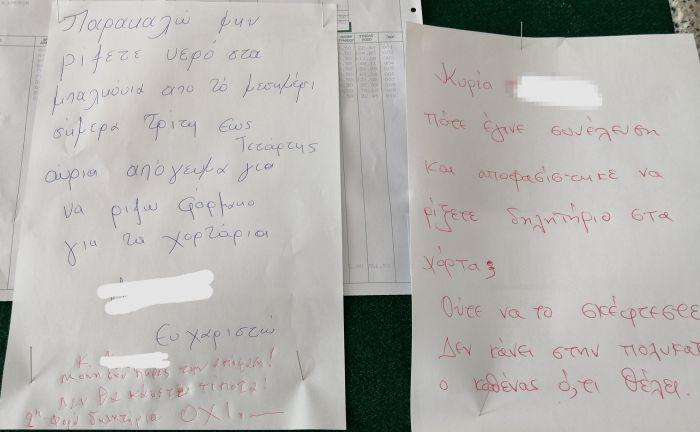 Παρακαλώ μην
ρίξετε νερό στα
μπαλκόνια από το μεσημέρι
σήμερα Τρίτη έως
Τετάρτης
αύριο απόγευμα για
να ριξω φάρμακο
για τα χορτάρια
Ευχαριστώ
Κ.
την απόφαση!
Δεν θα κάνετε τίποτε!
2η φορά δηλητήρια ΟΧΙ.
Κυρία
Πότε έγινε συνέλευση
και αποφασίστηκε να
ρίξετε δηλητήριο στα
χόρτα;
Ούτε να το σκέφτεσθε
Δεν κάνει στην πολυκατ
ο καθένας ό,τι θέλει.